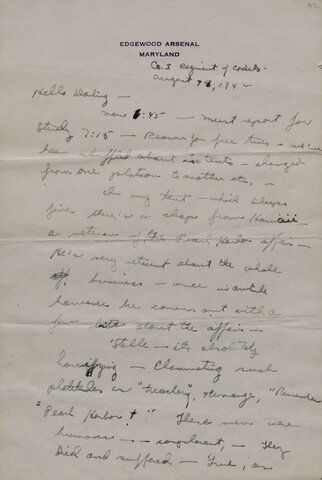 92
EDGEWOOD ARSENAL
MARYLAND
Co. I Regiment of Cadets
August 7, 1942
Hello Darling —
now 6:45 — must report for
Study 7:15 — Reason for free time — we've
been shuffled about in tents — changed
from one platoon to another etc. —
In my tent — which sleeps
five there's a chap from Hawaii
a veteran of the Pearl Harbor affair —
He's very reticent about the whole
business — once in awhile
however he comes out with a
few bits about the affair —
Stelle — it's absolutely
horrifying — Eliminating such
platitudes as "treachery, revenge, "Remember
"Pearl Harbor" — These men were
humans — complacent, — They
died and suffered — True, as